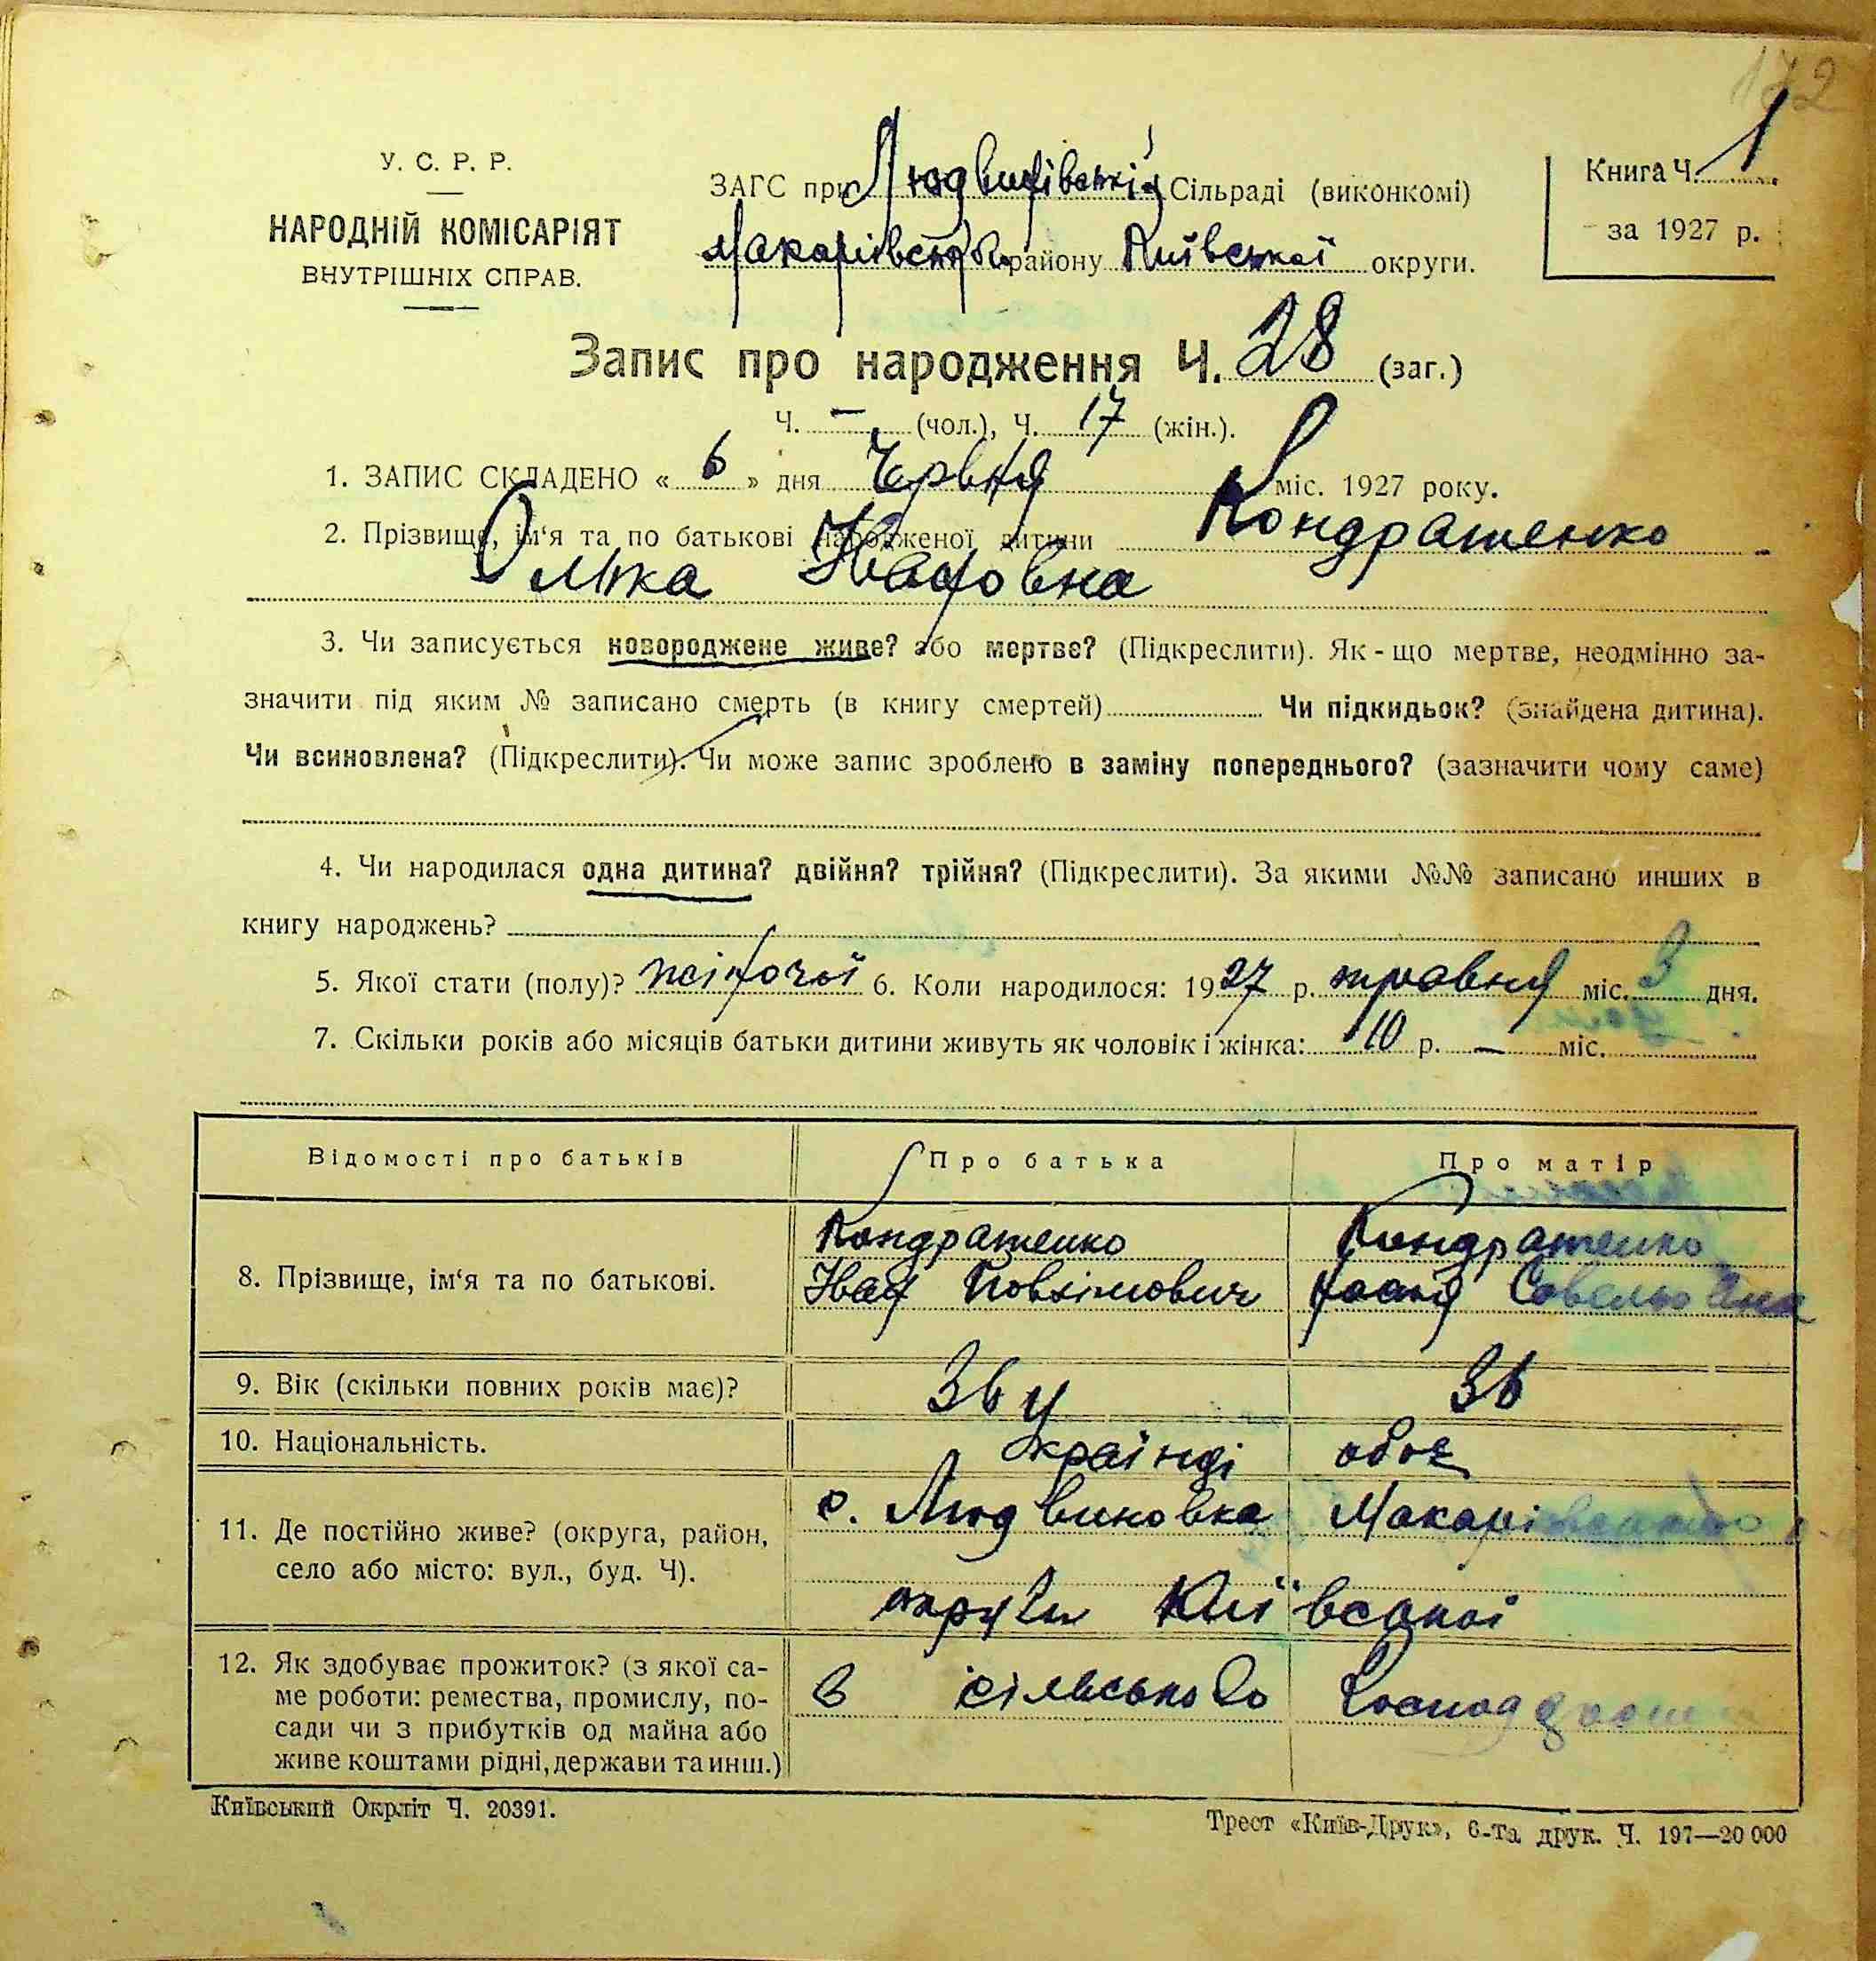 172
У. С. Р. Р.
НАРОДНІЙ КОМІСАРІЯТ
ВНУТРІШНІХ СПРАВ.
ЗАГС при Людвинівській Сільраді (виконкомі)
Макарівського району Київської округи.
Книга Ч. 1
за 1927 р.
Запис про народження Ч. 28 (заг.)
Ч. — (чол.), Ч. 17 (жін.).
1. ЗАПИС СКЛАДЕНО « 6 » дня Червня міс. 1927 року.
2. Прізвище, ім‘я та по батькові народженої дитини Кондратенко
Олька Івановна
3. Чи записується новороджене живе? або мертве? (Підкреслити). Як-що мертве, неодмінно за-
значити під яким № записано смерть (в книгу смертей) Чи підкидьок? (знайдена дитина).
Чи всиновлена? (Підкреслити). Чи може запис зроблено в заміну попереднього? (зазначити чому саме)
4. Чи народилася одна дитина? двійня? трійня? (Підкреслити). За якими №№ записано инших в
книгу народжень?
5. Якої стати (полу)? жіночої 6. Коли народилося: 1927 р. травня міс. 3 дня.
7. Скільки років або місяців батьки дитини живуть як чоловік і жінка: 10 р. — міс.
Відомості про батьків Про батька Про матір
8. Прізвище, ім‘я та по батькові. Кондратенко Кондратенко
Іван Совельовна
9. Вік (скільки повних років має)? 36 36
10. Національність. Українці обоє
11. Де постійно живе? (округа, район, с. Людвиновка Макарівського р.
село або місто: вул., буд. Ч). округи Київської
12. Як здобуває прожиток? (з якої са- в сільського
ме роботи: ремества, промислу, по-
сади чи з прибутків од майна або
живе коштами рідні, держави та инш.)
Київський Окрліт Ч. 20391.
Трест «Київ-Друк», 6-та друк. Ч. 197—20 000